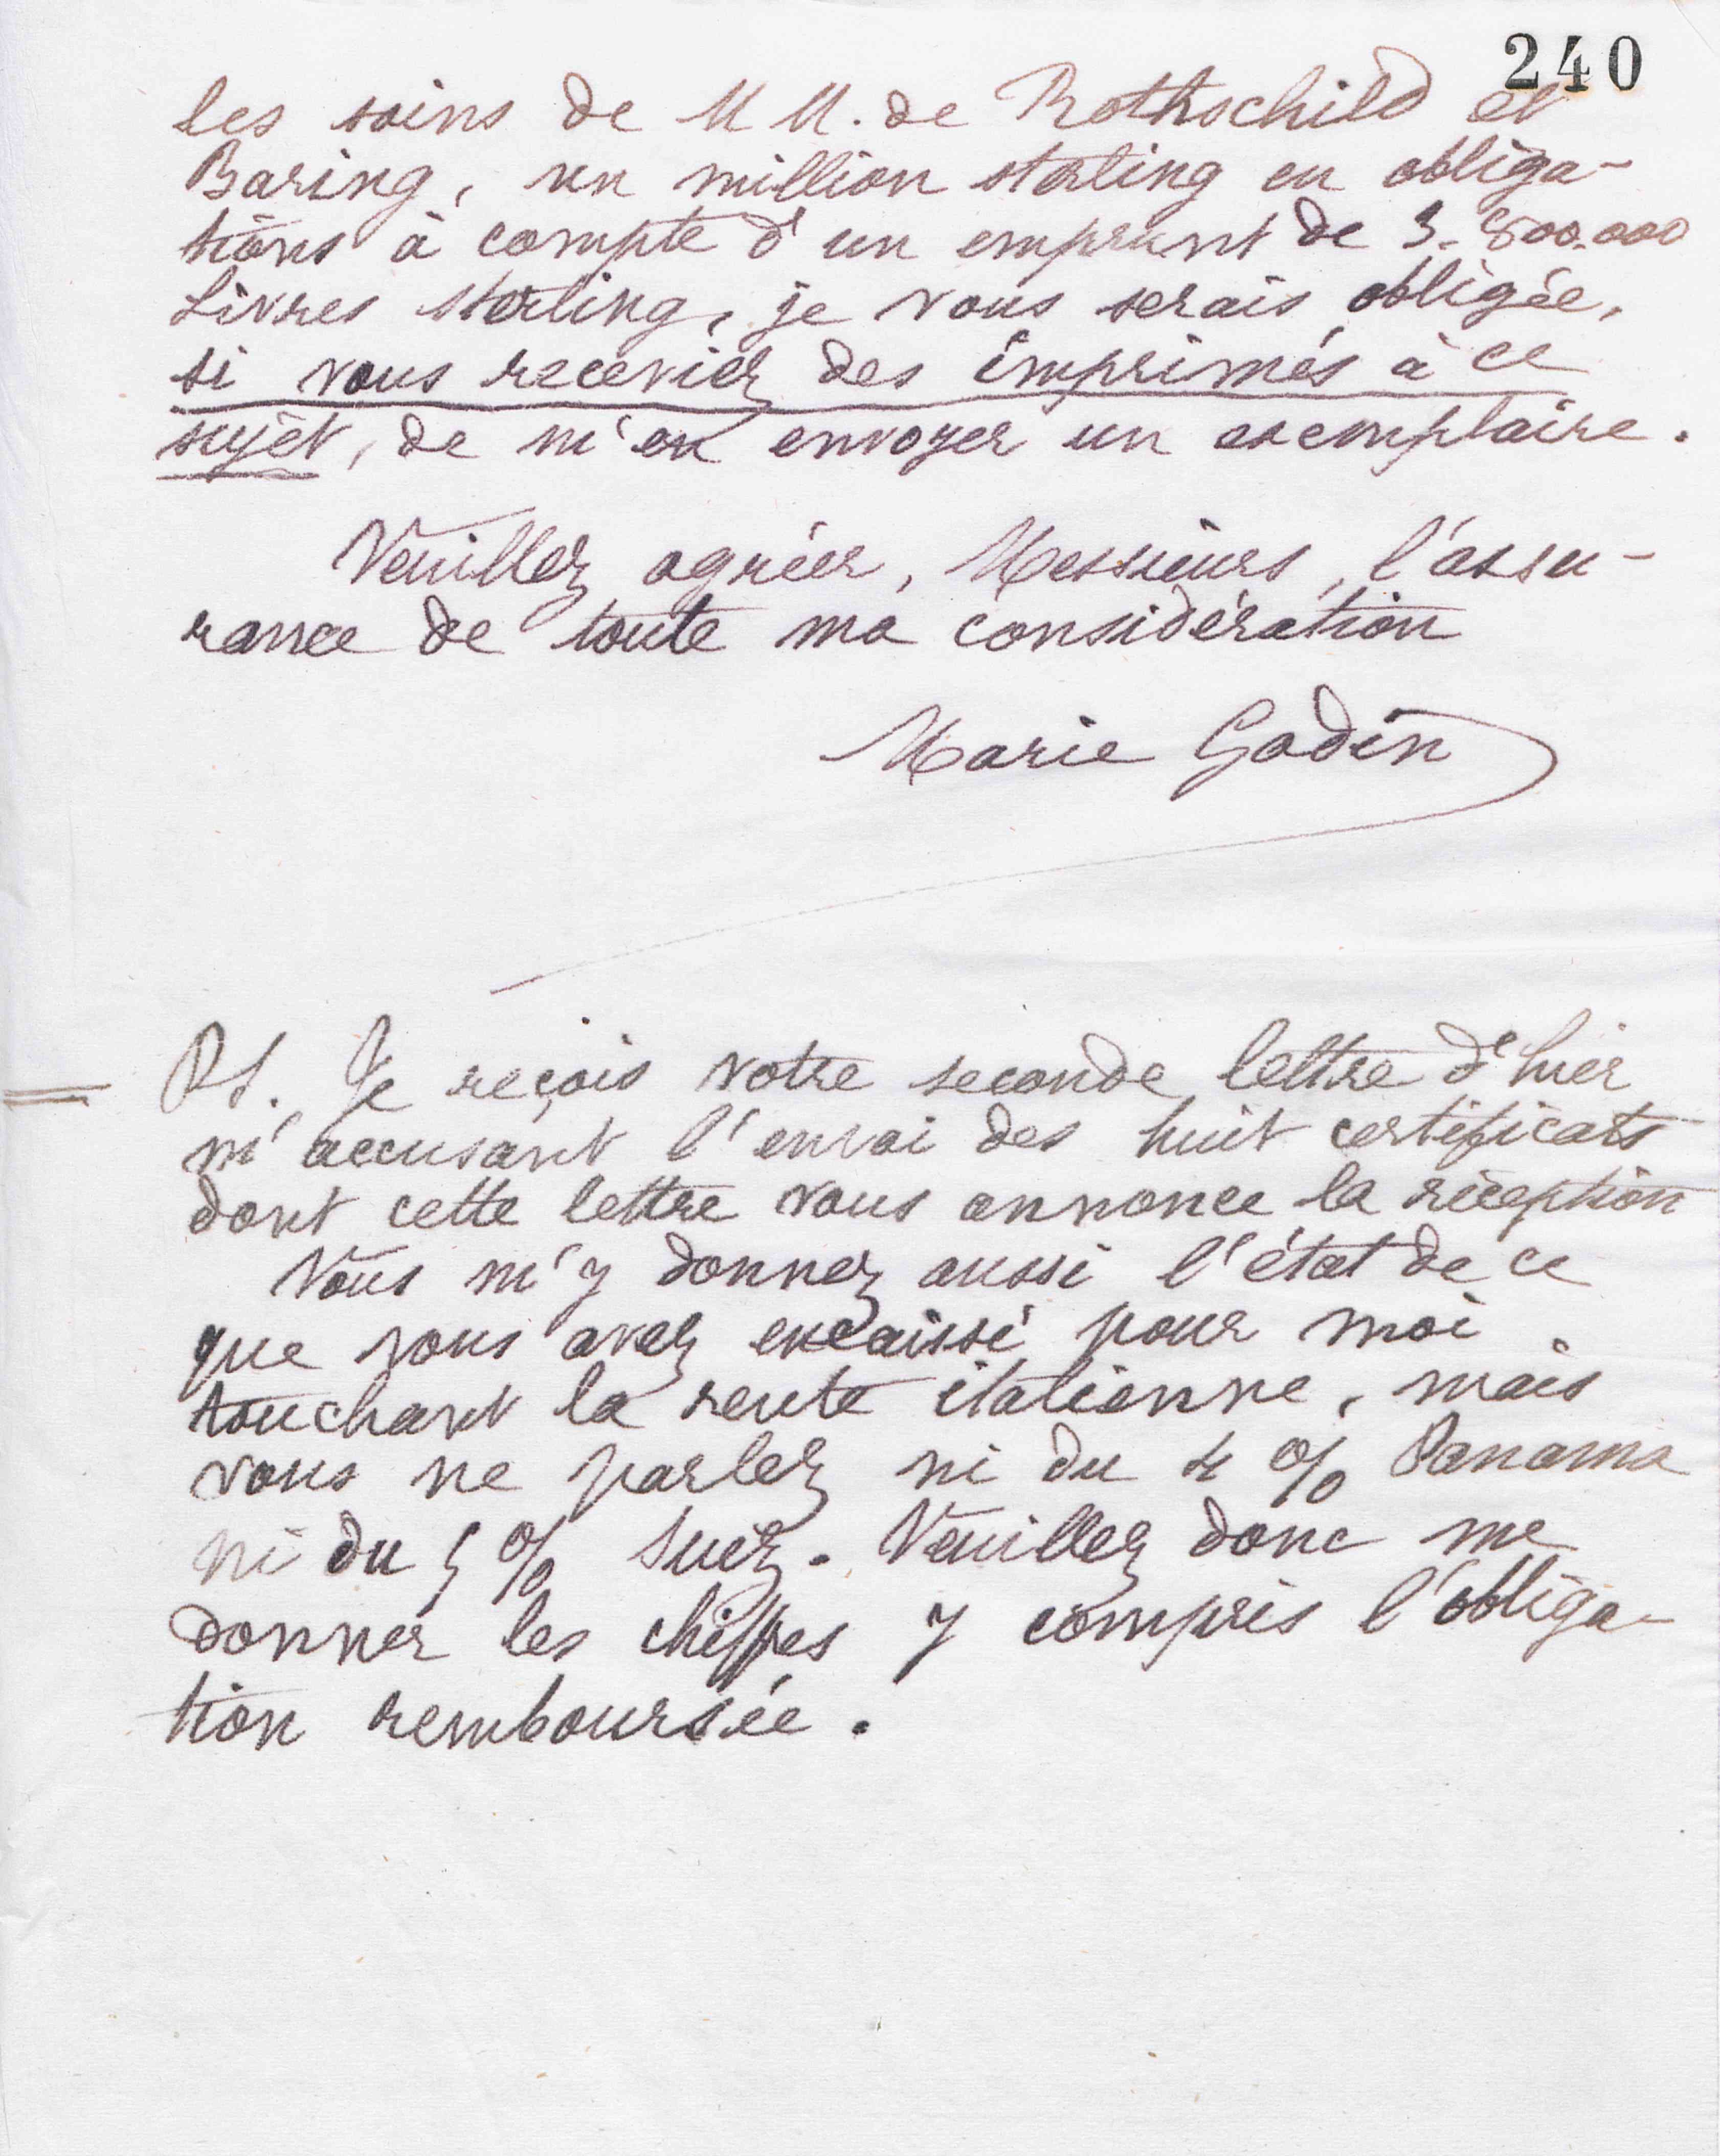 240
les soins de MM. de Rothschild et
Baring, un million sterling en obliga-
tions à compte d'un emprunt de 3.800.000
Livres Sterling, je vous serais obligée,
si vous receviez des imprimés à ce
sujet, de m'en envoyer un exemplaire.
Veuillez agréer, Messieurs, l'assu-
rance de toute ma considération
Marie Godin
PS. Je reçois votre seconde lettre d'hier
m'accusant l'envoi des huit certificats
dont cette lettre vous annonce la réception
Vous m'y donnez aussi l'état de ce
que vous avez encaissé pour moi
touchant la rente italienne, mais
vous ne parlez ni du 4 % Panama
ni du 5 % Suez. Veuillez donc me
donner les chiffres y compris l'obliga-
tion remboursée.